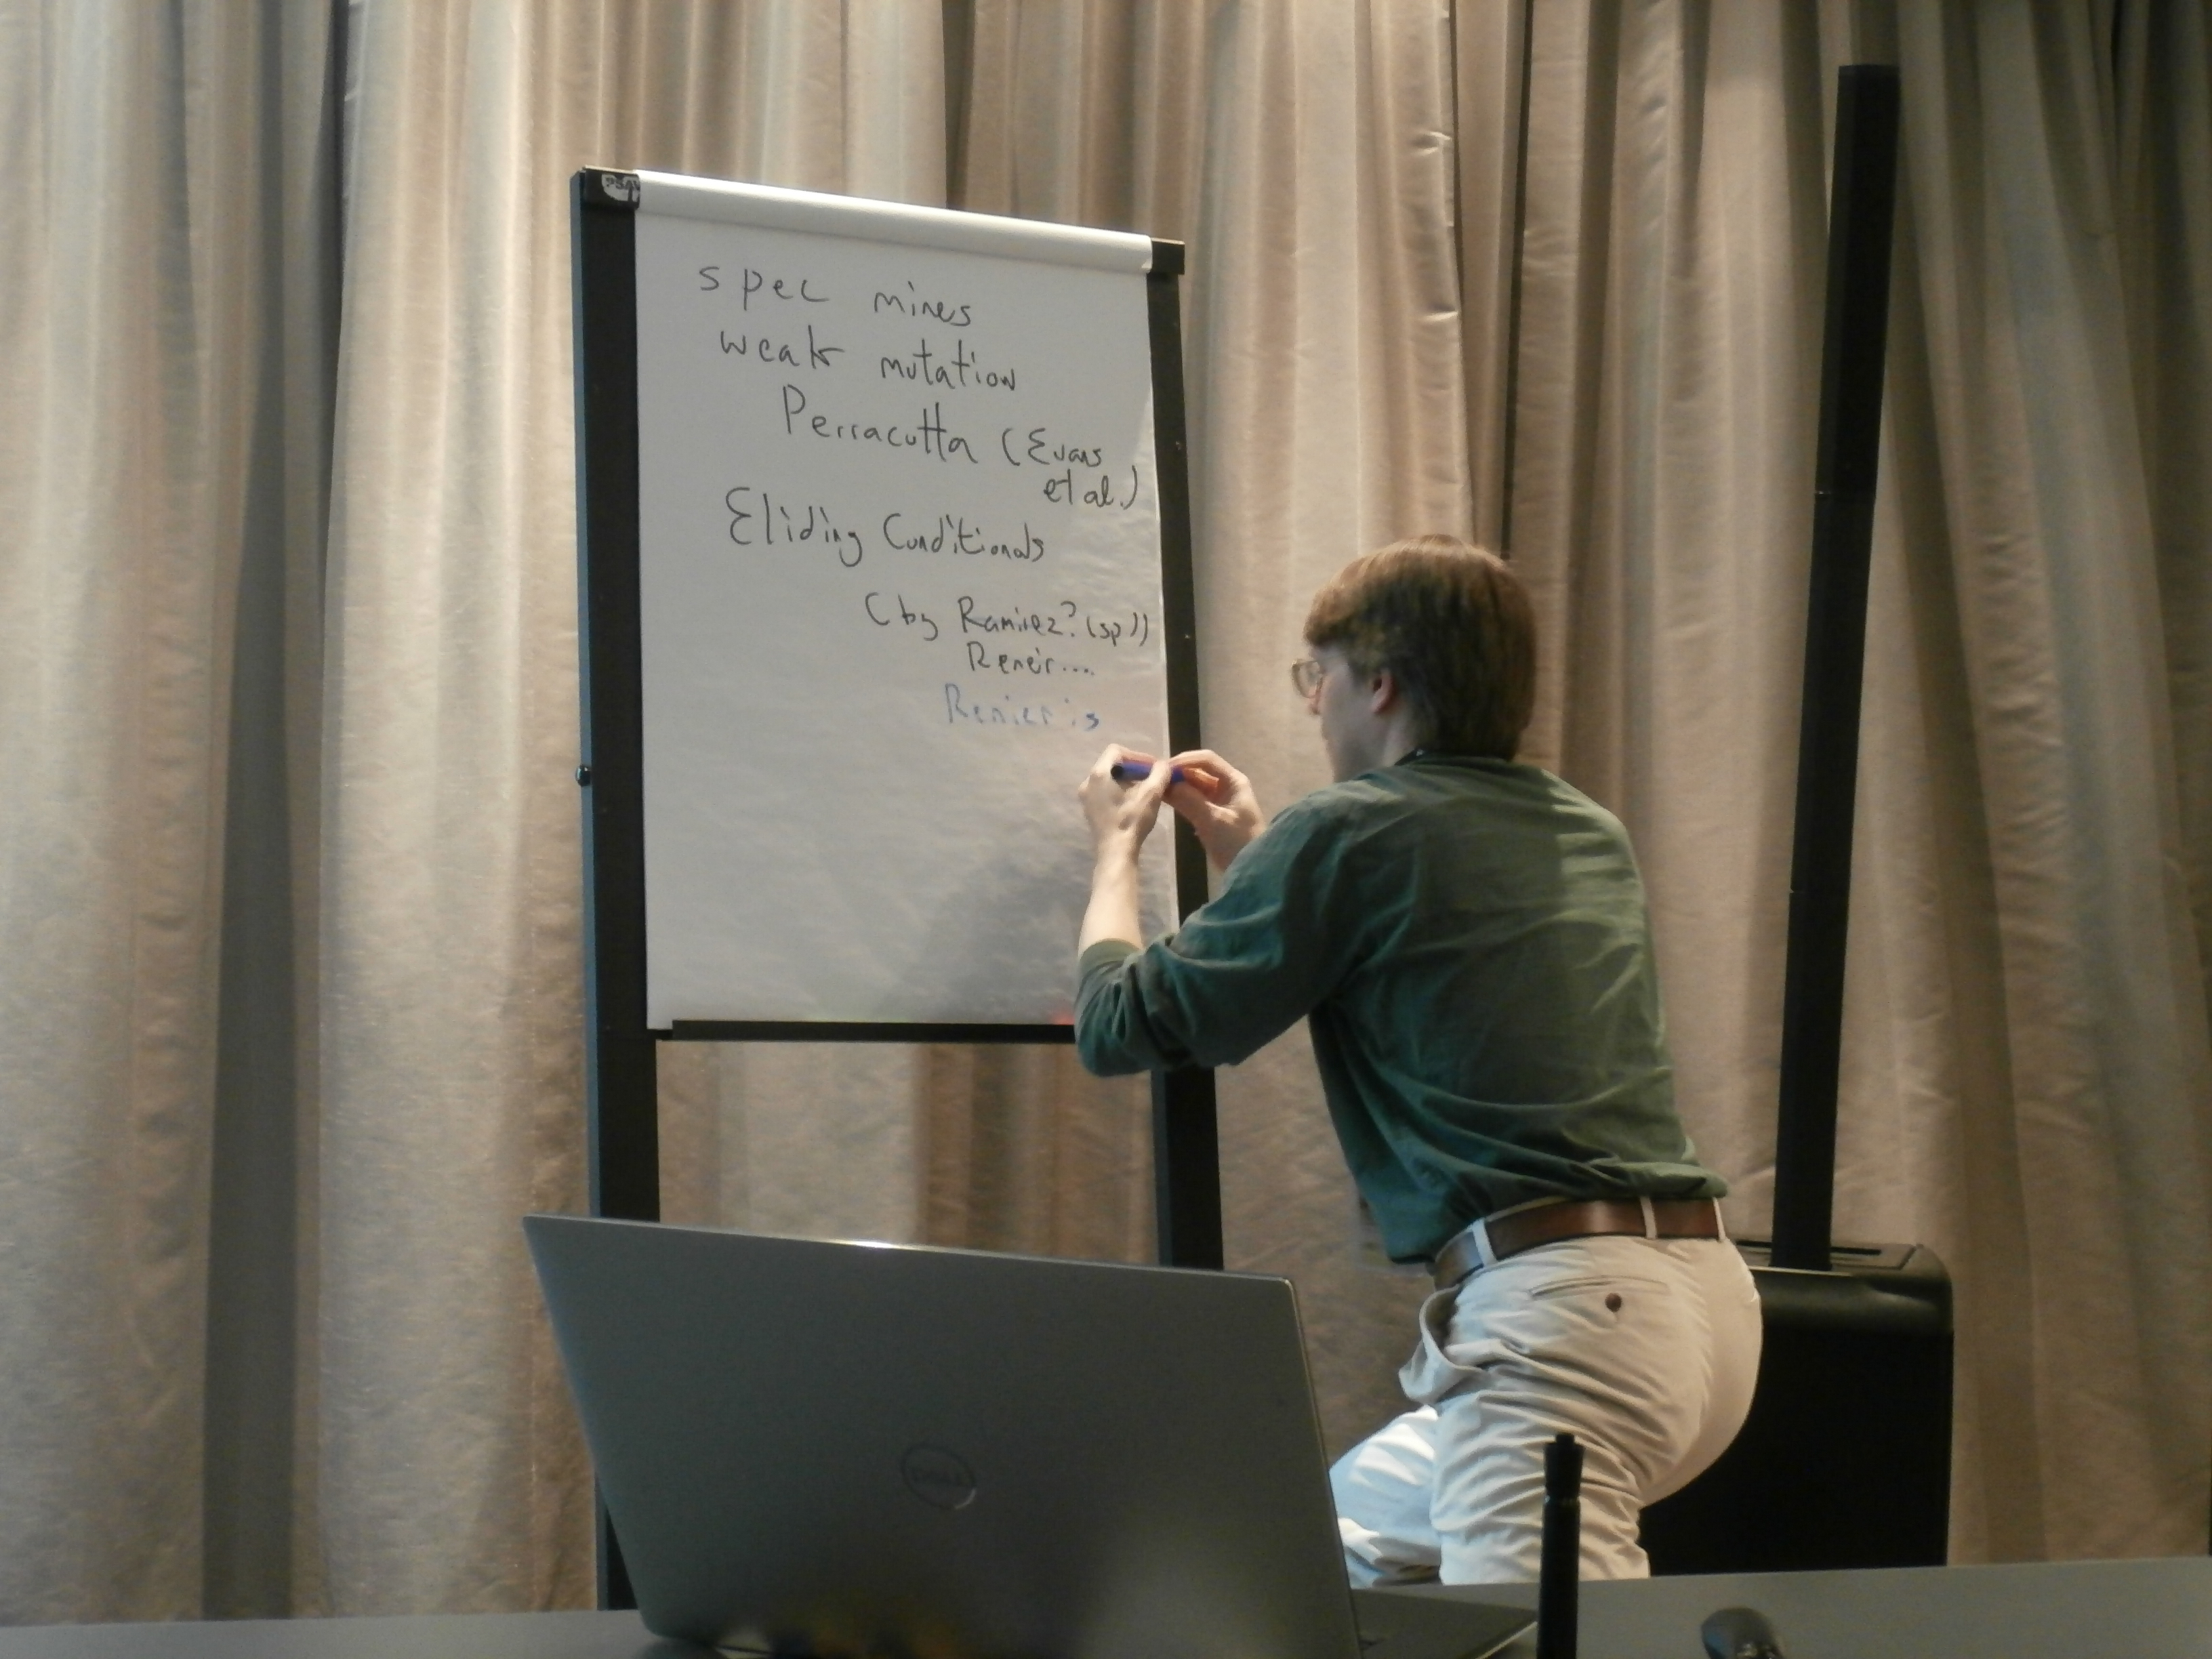 PSAV
spec mines
weak mutation
Perracutta (Evans
et al.)
Eliding Conditionals
(by Ramirez? (sp))
Reneir....
Renieris
DELL